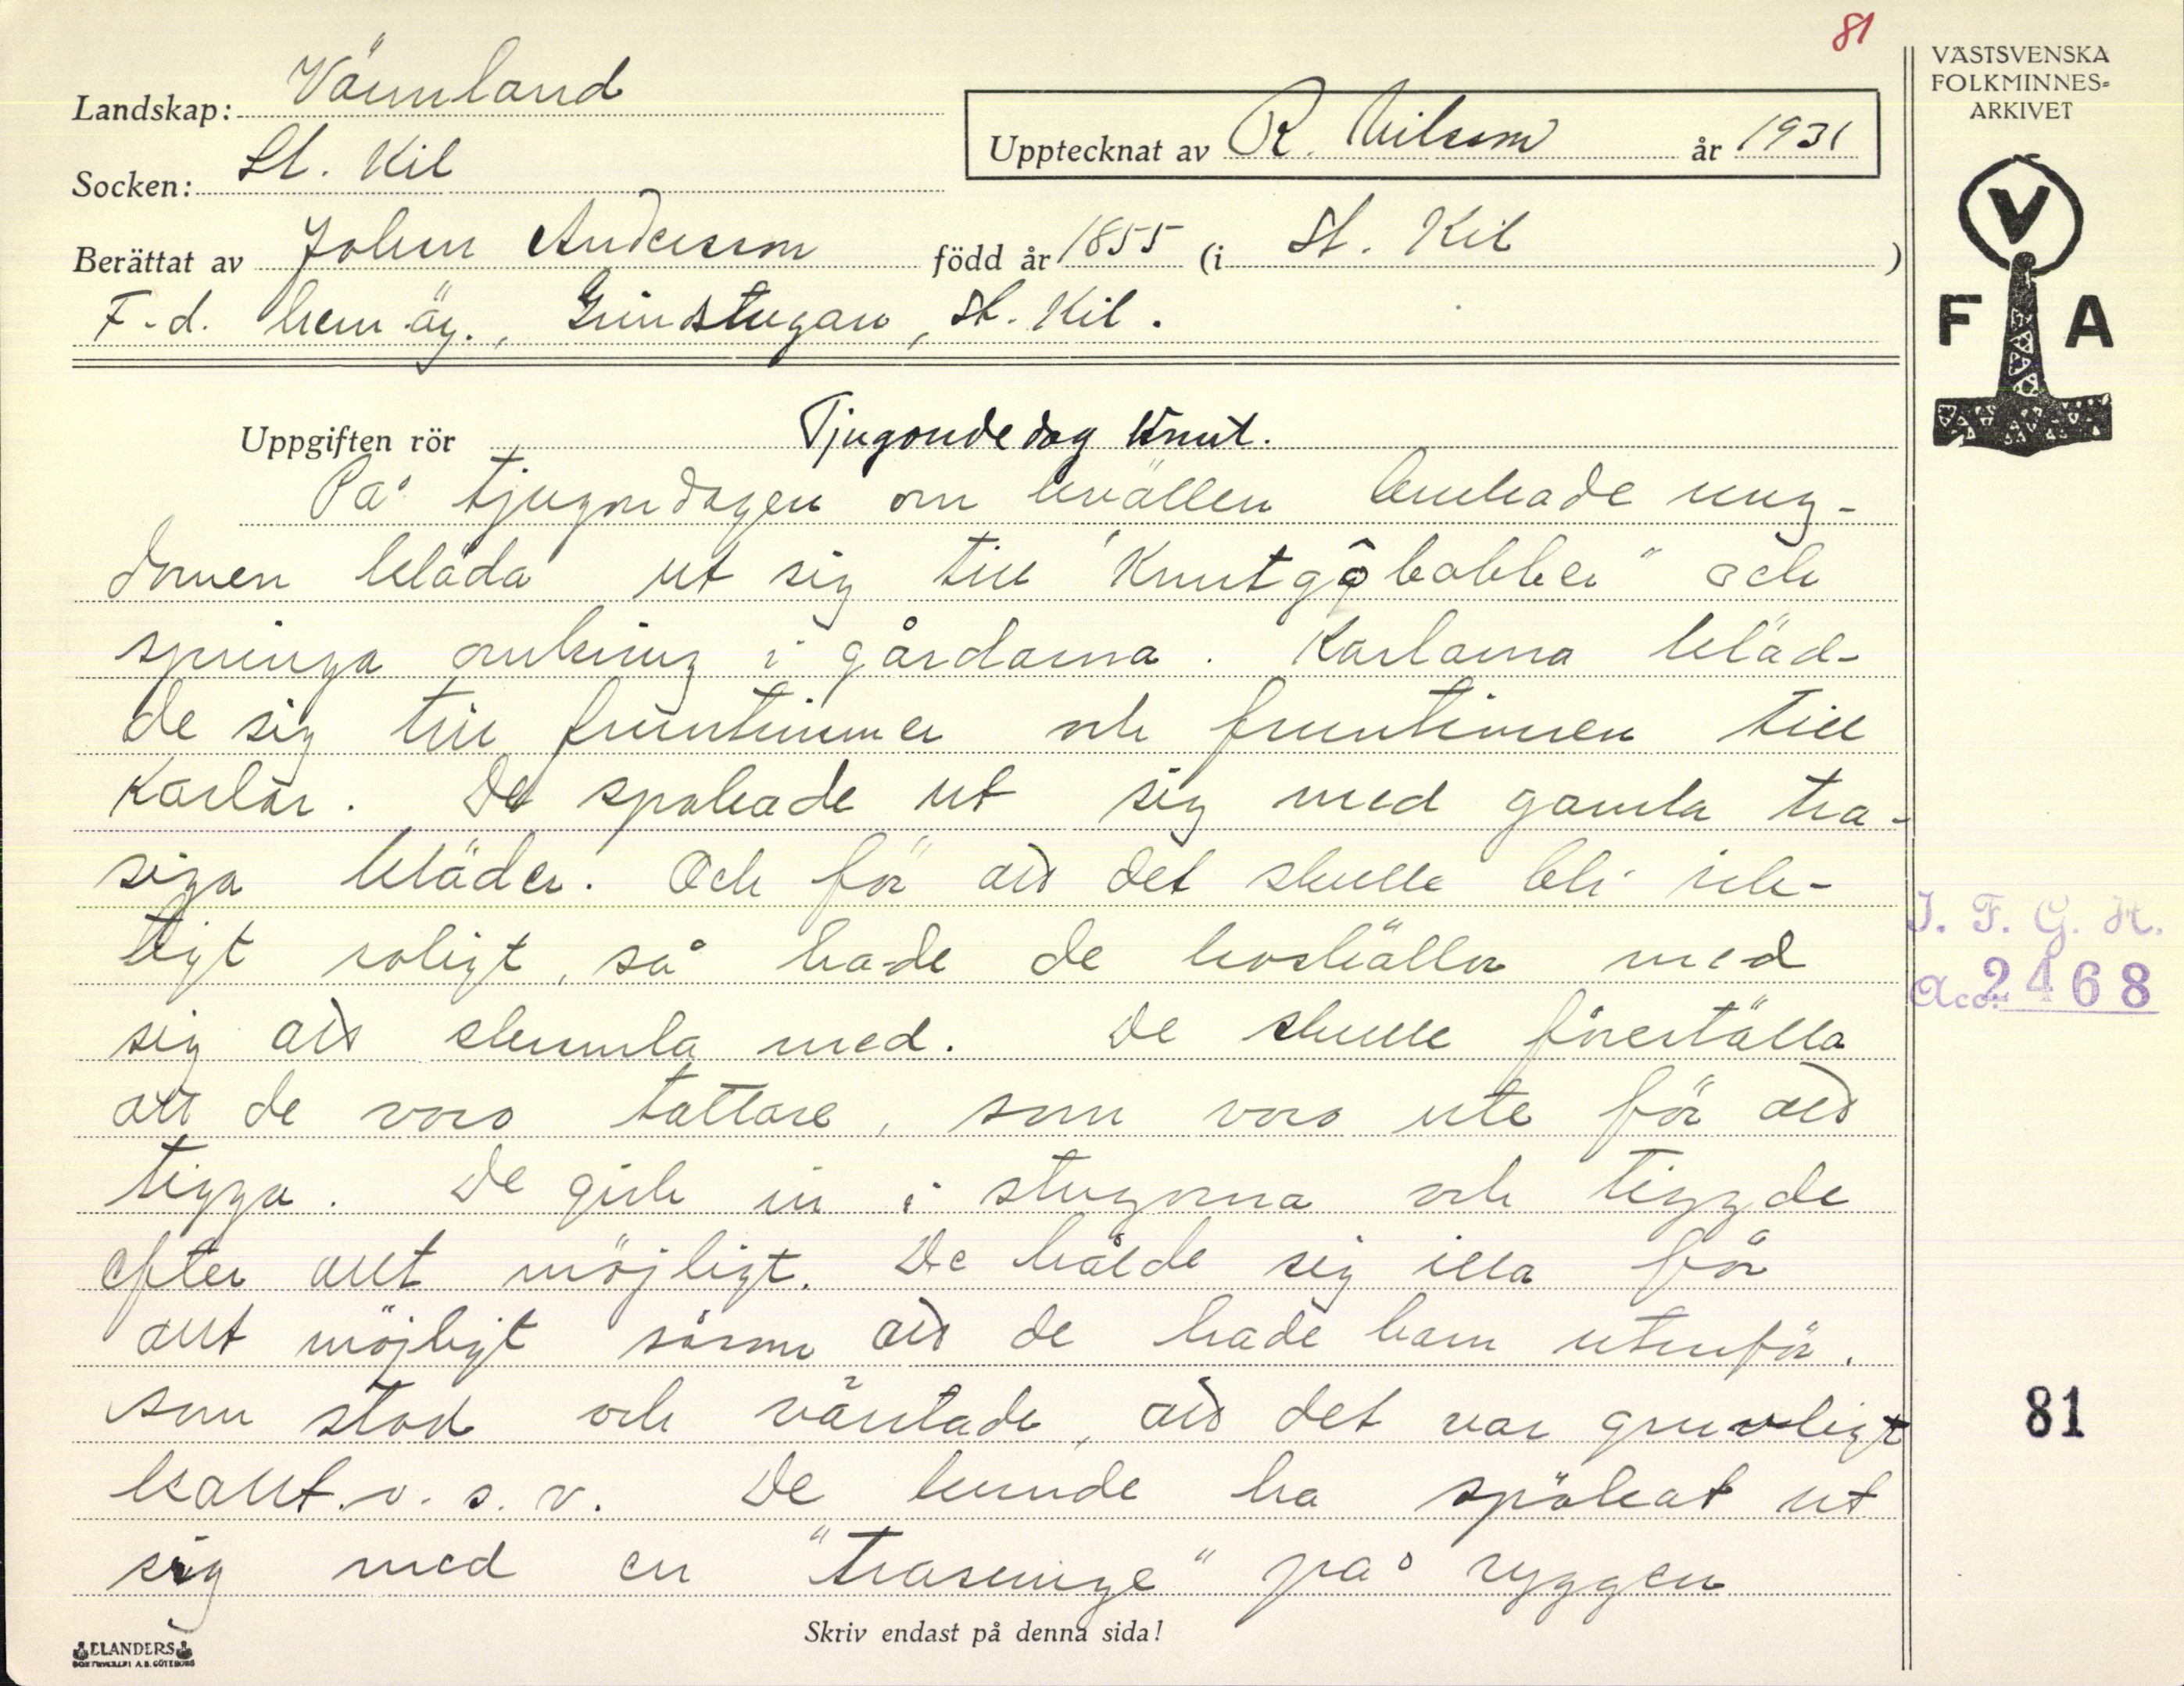 81
Landskap: Värmland
Socken: St. Kil
Upptecknat av R. Nilsson år 1931
Berättat av Johan Andersson född år 1855 (i St. Kil )
F.d. hem.äg., Grinstugan, St. Kil.
VÄSTSVENSKA
FOLKMINNES-
ARKIVET
V
F A
Uppgiften rör Tjugondedag Knut.
På tjugondagen om kvällen brukade ung-
domen kläda ut sig till "Knutgôbabber" och
springa omkring i gårdarna. Karlarna kläd-
de sig till fruntimmer och fruntimren till
karlar. De spökade ut sig med gamla tra-
siga kläder. Och för att det skulle bli rik-
tigt roligt, så hade de koskällor med
sig att skramla med. De skulle föreställa
att de voro tattare, som voro ute för att
tigga. De gick in i stugorna och tiggde
efter allt möjligt. De hålde sig illa för
allt möjligt såsom att de hade barn utanför,
som stod och väntade, att det var gruvligt
kallt o. s. v. De kunde ha spökat ut
sig med en "trasunge" på ryggen
Skriv endast på denna sida!
I. F. G. H.
Acc. 2468
81
ELANDERS
BOKTRYCKERI A.B. GÖTEBORG